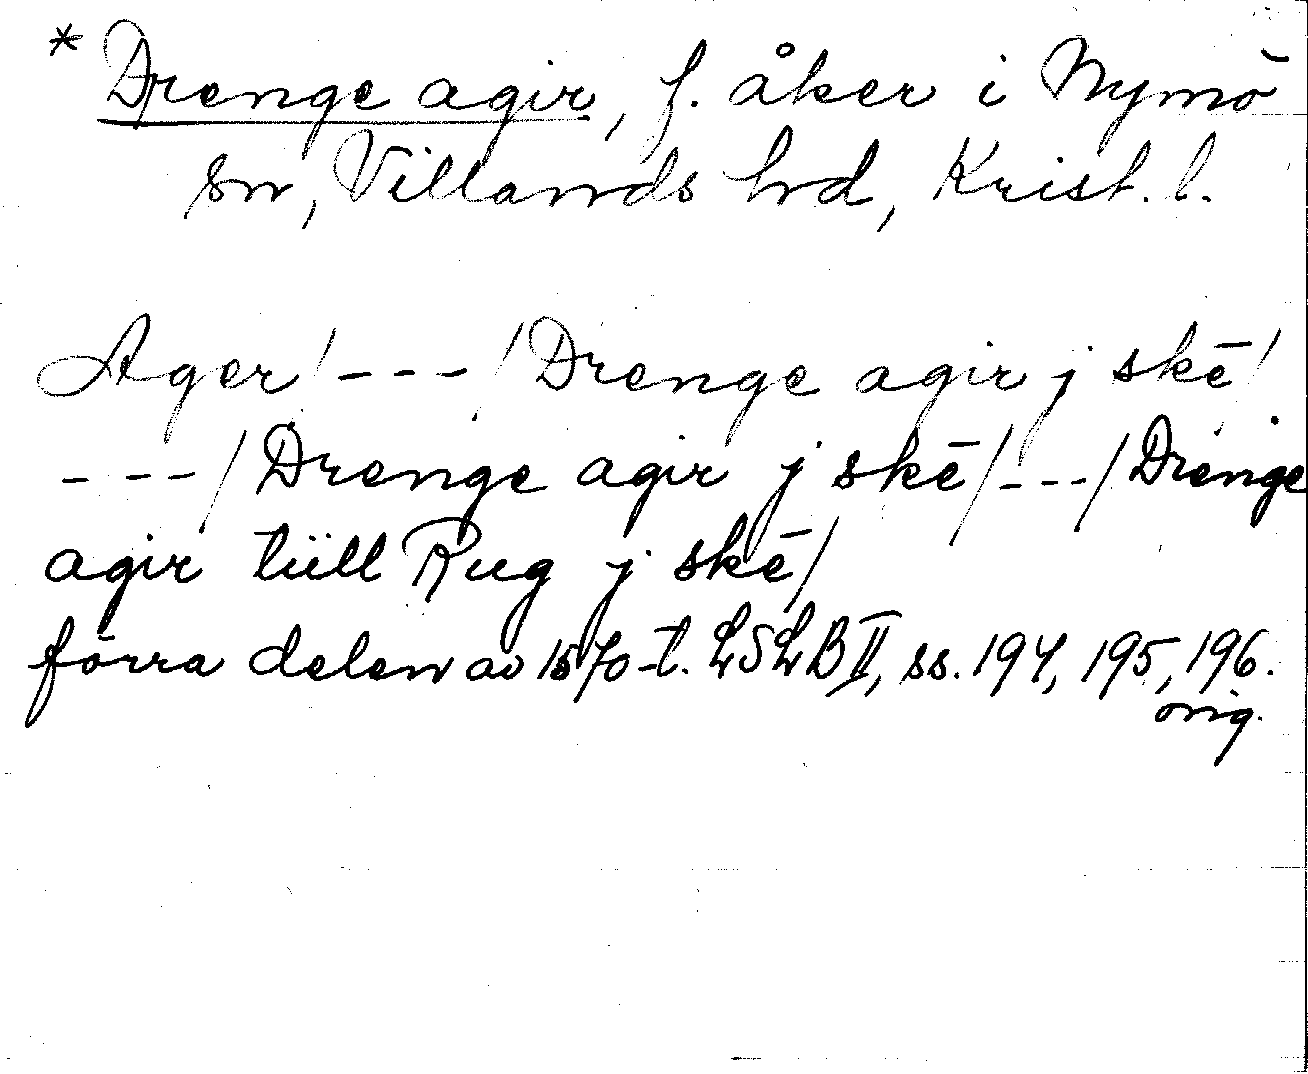 * Drenge agir, f. åker i Nymö
sn, Villands hd, Krist. l.
Ager / --- / Drenge agir j skē /
--- / Drenge agir j skē / --- / Drenge
agir tiill Rug j skē /
förra delen av 1570-t. LSLB II, ss. 194, 195, 196.
orig.